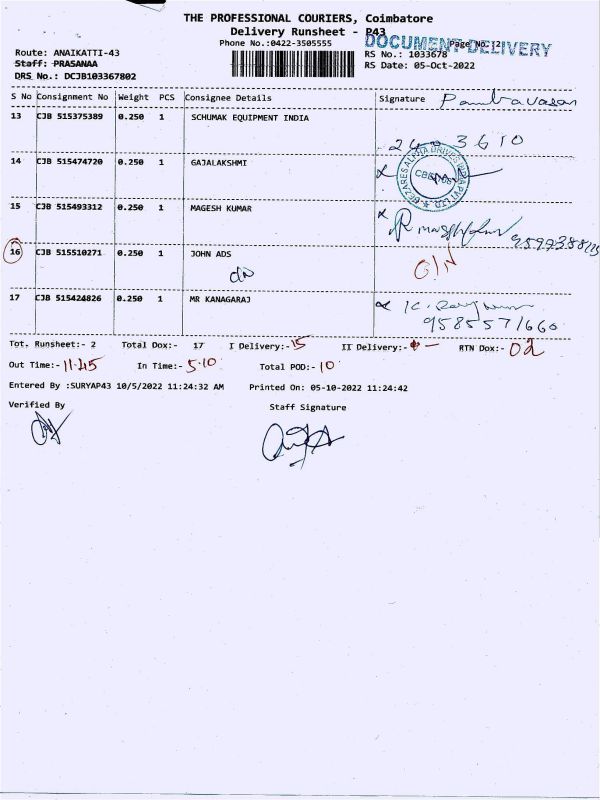 THE PROFESSIONAL COURIERS, Coimbatore
Delivery Runsheet - P43
Phone No.:0422-3505555
DOCUMENT DELIVERY
Page No.:2
Route: ANAIKATTI-43
RS No.: 1033678
Staff: PRASANAA
RS Date: 05-Oct-2022
DRS No.: DCJB103367802
S No Consignment No Weight PCS Consignee Details Signature
13 CJB 515375389 0.250 1 SCHUMAK EQUIPMENT INDIA
14 CJB 515474720 0.250 1 GAJALAKSHMI
15 CJB 515493312 0.250 1 MAGESH KUMAR
16 CJB 515510271 0.250 1 JOHN ADS
17 CJB 515424826 0.250 1 MR KANAGARAJ
9585571660
Tot. Runsheet:- 2 Total Dox:- 17 I Delivery:- 15 II Delivery:- RTN Dox:- 02
Out Time:- 11.45 In Time:- 5.10 Total POD:- 10
Entered By :SURYAP43 10/5/2022 11:24:32 AM Printed On: 05-10-2022 11:24:42
Verified By Staff Signature